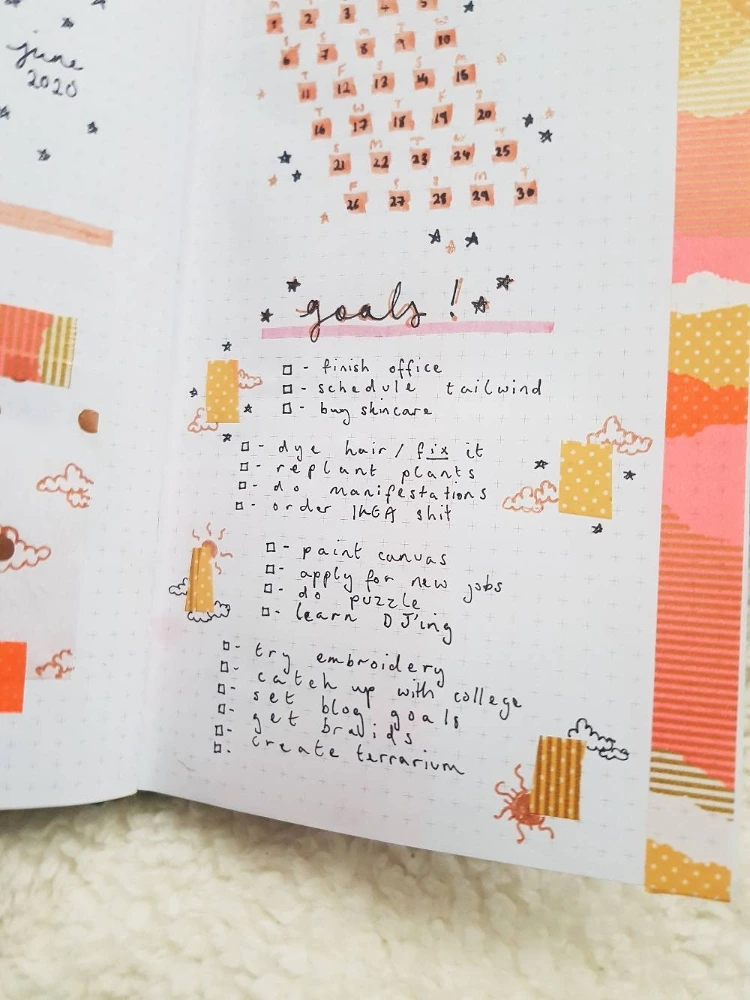 june
2020
1 2 3 4 5
S S M T W
6 7 8 9 10
T F S S M
11 12 13 14 15
T W T F S
16 17 18 19 20
S M T W T
21 22 23 24 25
F S S M T
26 27 28 29 30
goals!
- finish office
- schedule tailwind
- buy skincare
- dye hair / fix it
- replant plants
- do manifestations
- order IKEA shit
- paint canvas
- apply for new jobs
- do puzzle
- learn DJ'ing
- try embroidery
- catch up with college
- set blog goals
- get braids
- create terrarium